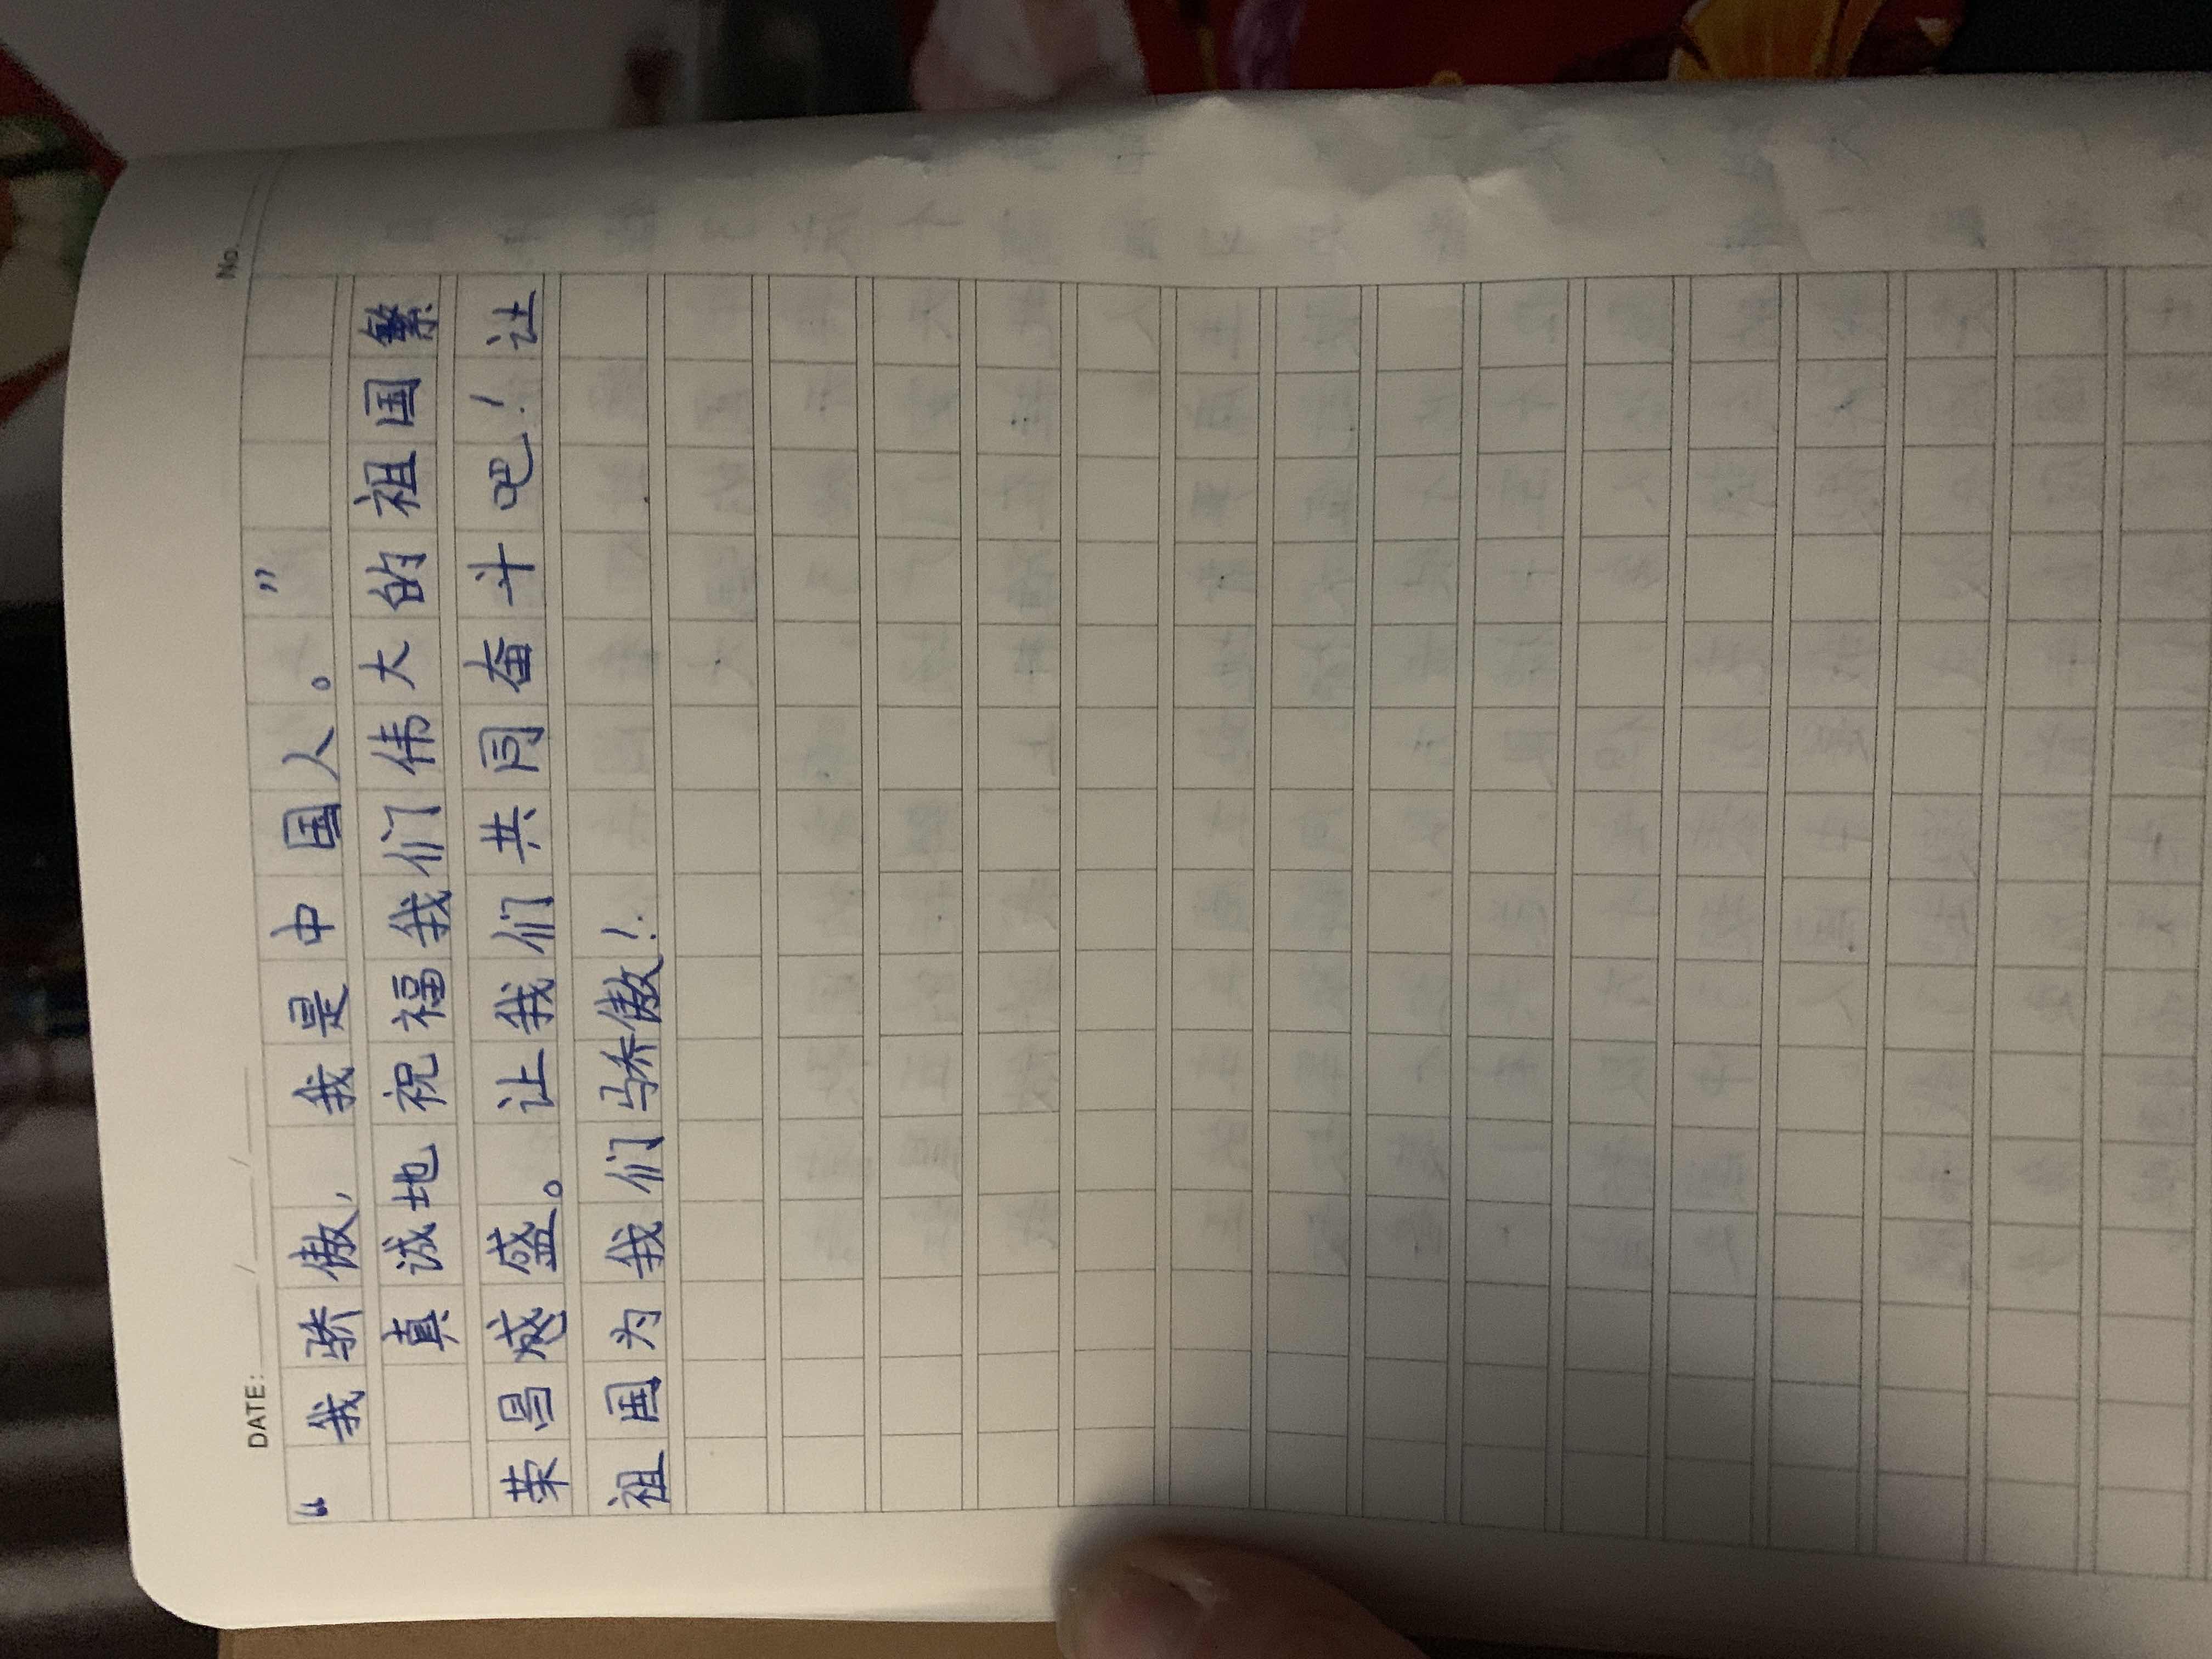 No.
DATE: / /
“我骄傲，我是中国人。”
真诚地祝福我们伟大的祖国繁
荣昌盛盛。让我们共同奋斗吧！让
祖国为我们骄傲！